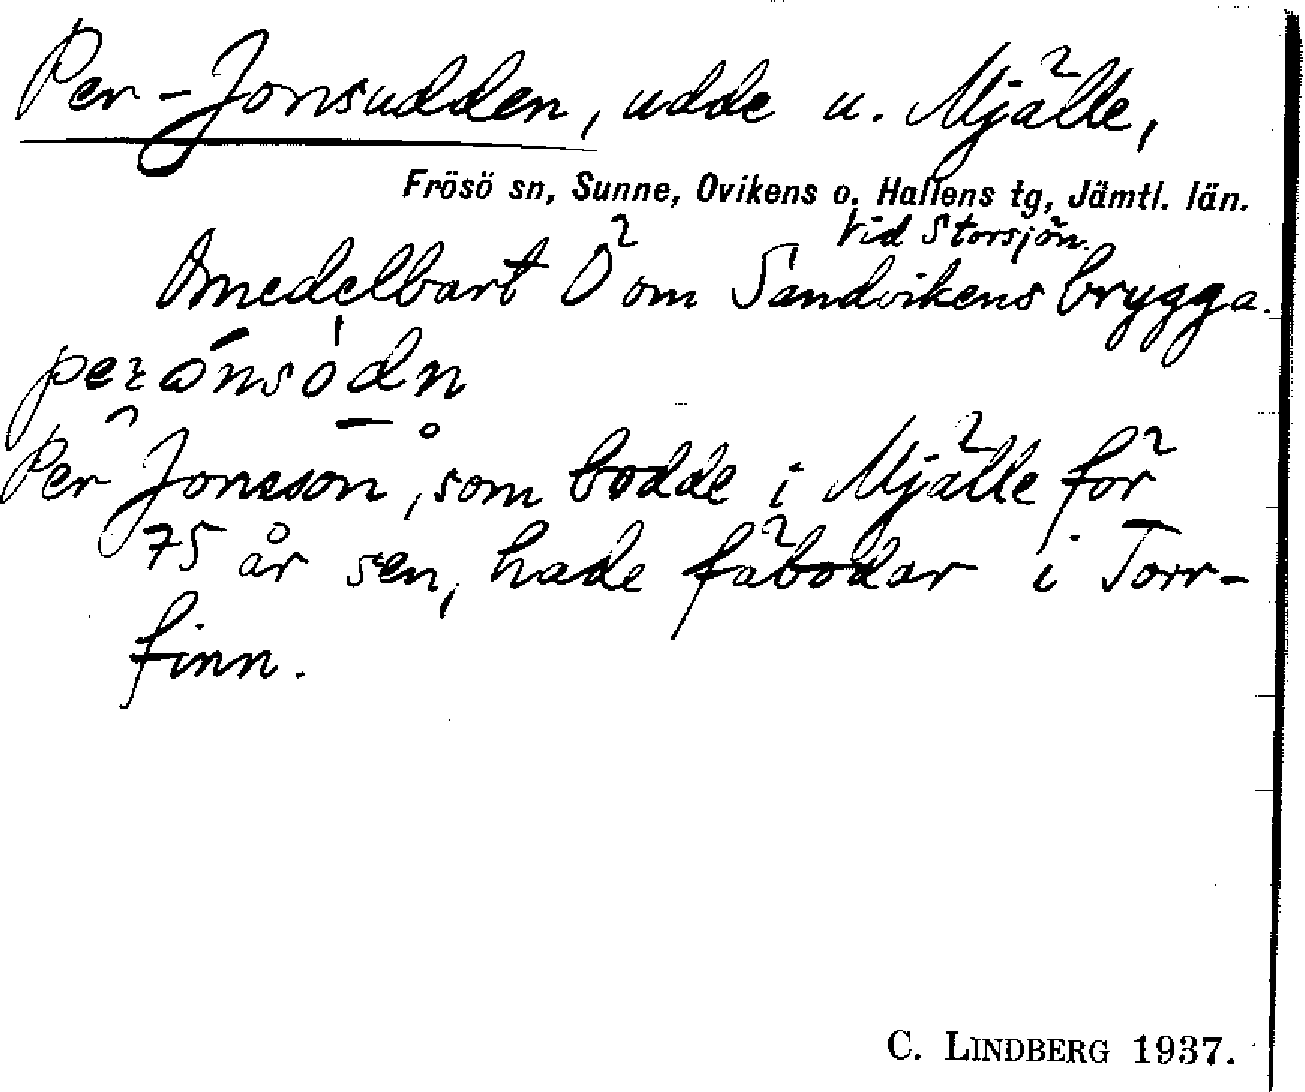 Per-Jonsudden, udde u. Mjälle,
Frösö sn, Sunne, Ovikens o. Hallens tg, Jämtl. län.
vid Storsjön.
Omedelbart Ö om Sandvikens brygga.
Per Jonsson, som bodde i Mjälle för
75 år sen, hade fäbodar i Torr-
finn.
C. LINDBERG 1937.